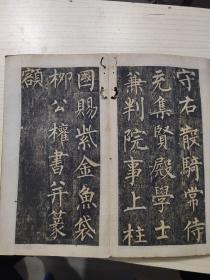 守右散騎常侍
充集賢殿學士
兼判院事上柱
國賜紫金魚袋
柳公權書并篆
額